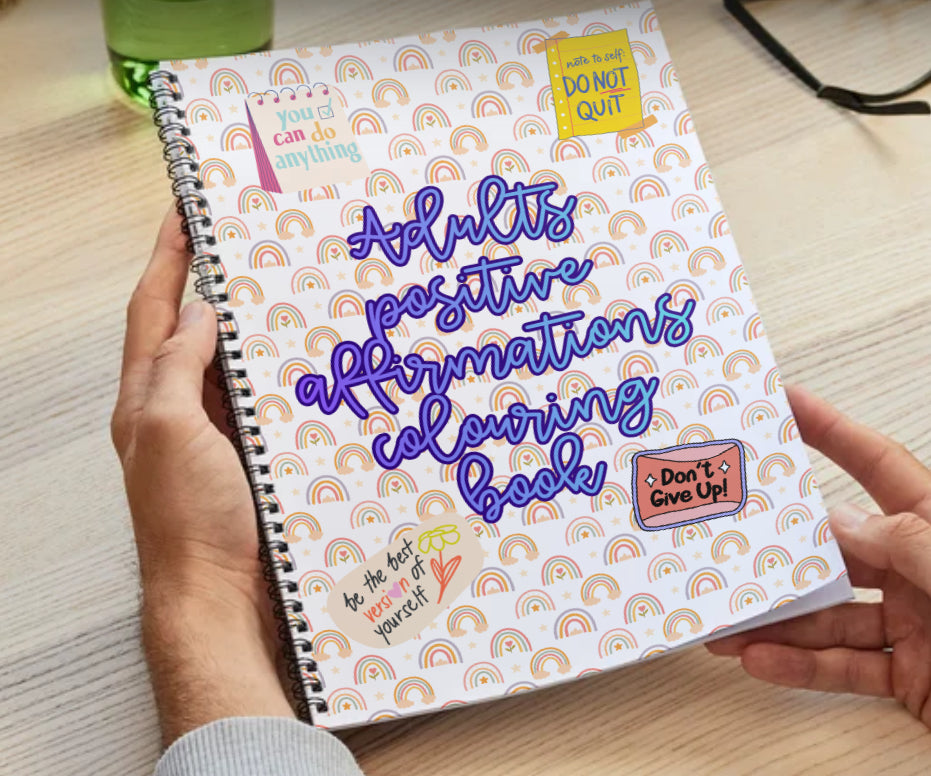 you
can do
anything
note to self:
DO NOT
QUIT
Adults
positive
affirmations
colouring
book
Don't
Give Up!
be the best
version of
yourself